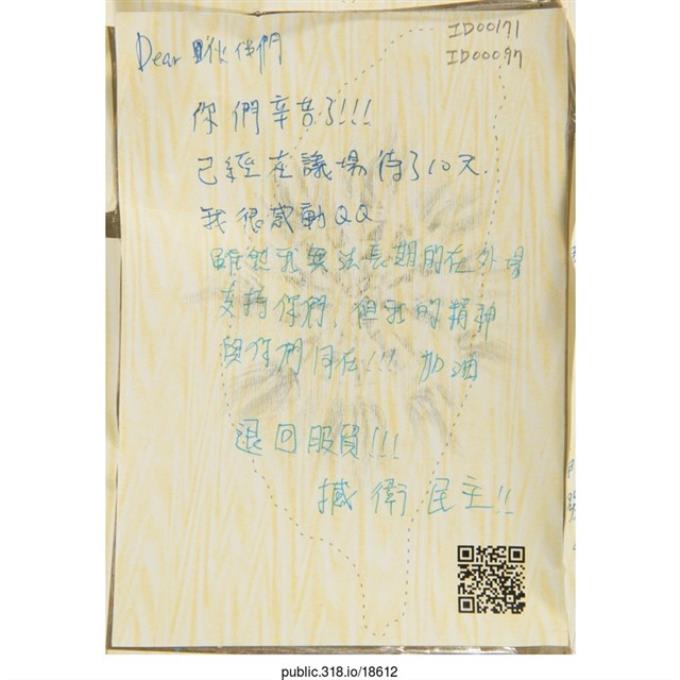 ID00171
ID00097
Dear 夥伙伴們
你們辛苦了!!!
已經在議場待了10天.
我很感動QQ
雖然我無法長期的在外場
支持你們，但我的精神
與你們同在!!! 加油
退回服貿!!!
撼衛民主!!
public.318.io/18612